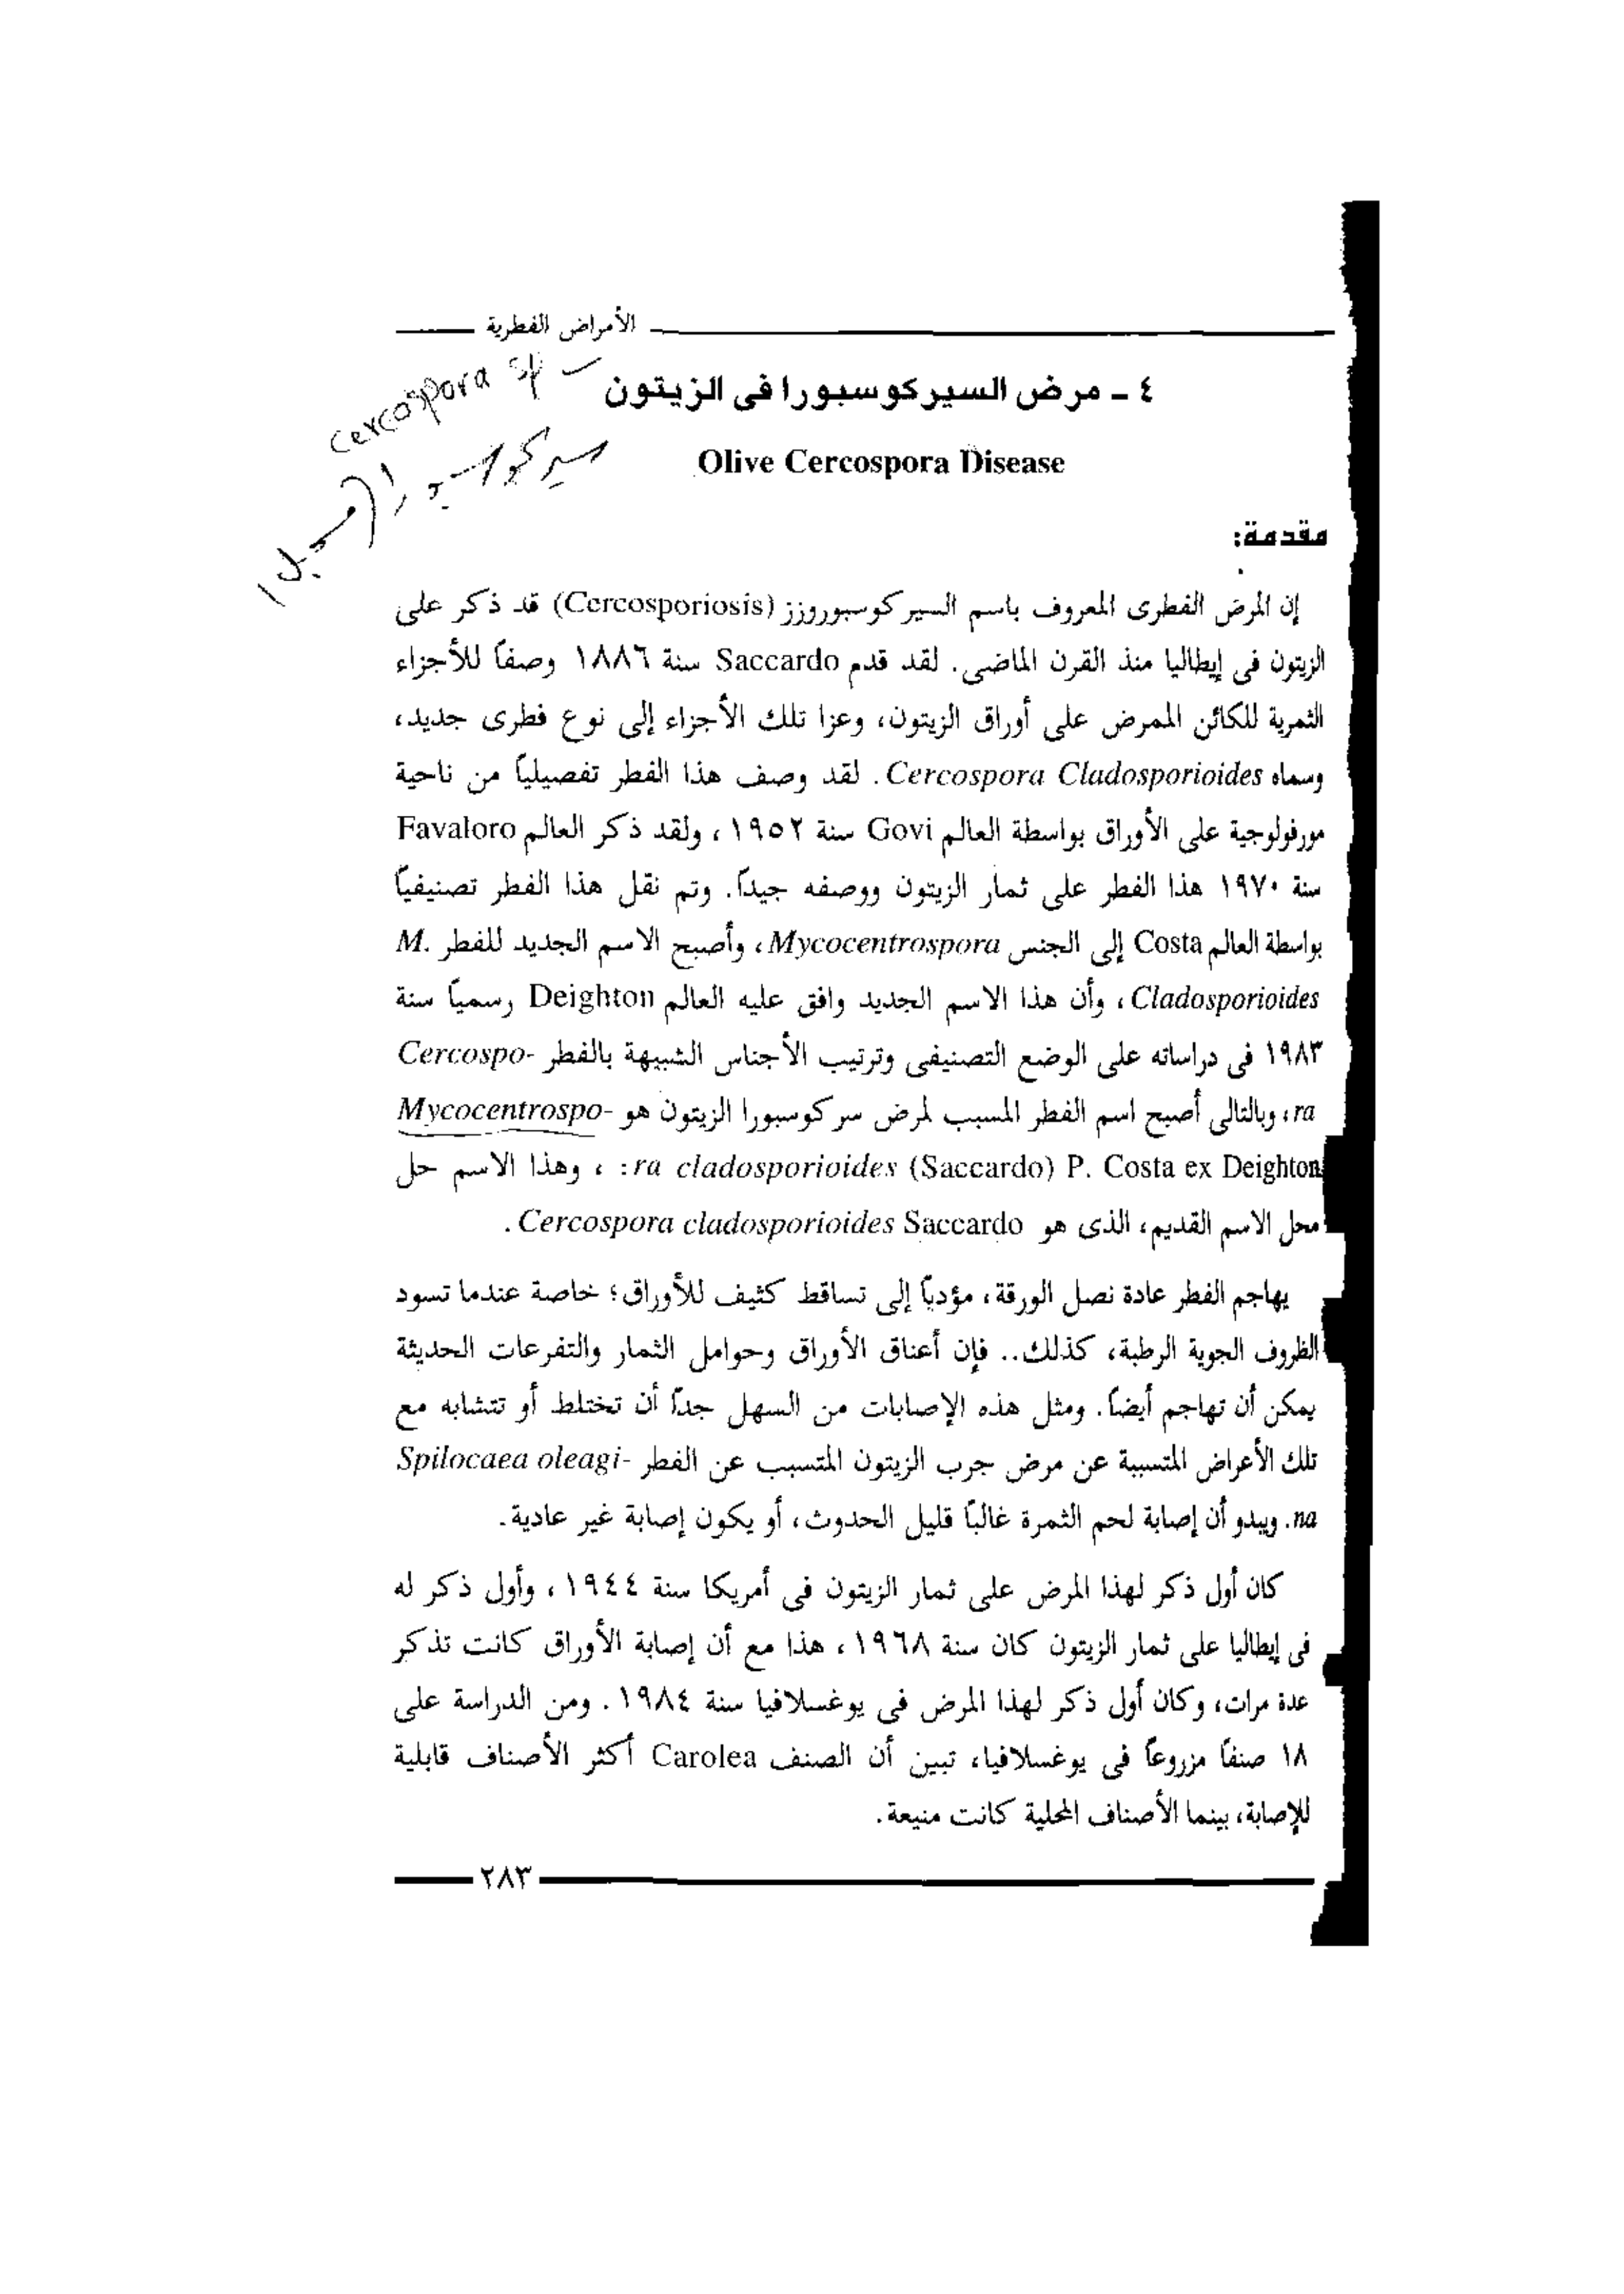 الأمراض الفطرية
Cercospora sp
٤ - مرض السيركوسبورا فى الزيتون
Olive Cercospora Disease
سيركوسبورا
مقدمة:
إن المرض الفطرى المعروف باسم السيركوسبوروزز (Cercosporiosis) قد ذكر على
الزيتون فى إيطاليا منذ القرن الماضى. لقد قدم Saccardo سنة ١٨٨٦ وصفاً للأجزاء
الثمرية للكائن الممرض على أوراق الزيتون، وعزا تلك الأجزاء إلى نوع فطرى جديد،
وسماه Cercospora Cladosporioides. لقد وصف هذا الفطر تفصيلياً من ناحية
مورفولوجية على الأوراق بواسطة العالم Govi سنة ١٩٥٢، ولقد ذكر العالم Favaloro
سنة ١٩٧٠ هذا الفطر على ثمار الزيتون ووصفه جيداً. وتم نقل هذا الفطر تصنيفياً
بواسطة العالم Costa إلى الجنس Mycocentrospora، وأصبح الاسم الجديد للفطر M.
Cladosporioides، وأن هذا الاسم الجديد وافق عليه العالم Deighton رسمياً سنة
١٩٨٣ فى دراساته على الوضع التصنيفى وترتيب الأجناس الشبيهة بالفطر Cercospo-
ra، وبالتالى أصبح اسم الفطر المسبب لمرض سركوسبورا الزيتون هو Mycocentrospo-
ra cladosporioides (Saccardo) P. Costa ex Deighton: ، وهذا الاسم حل
محل الاسم القديم، الذى هو Cercospora cladosporioides Saccardo.
يهاجم الفطر عادة نصل الورقة، مؤدياً إلى تساقط كثيف للأوراق؛ خاصة عندما تسود
الظروف الجوية الرطبة، كذلك.. فإن أعناق الأوراق وحوامل الثمار والتفرعات الحديثة
يمكن أن تهاجم أيضاً. ومثل هذه الإصابات من السهل جداً أن تختلط أو تتشابه مع
تلك الأعراض المتسببة عن مرض جرب الزيتون المتسبب عن الفطر Spilocaea oleagi-
na. ويبدو أن إصابة لحم الثمرة غالباً قليل الحدوث، أو يكون إصابة غير عادية.
كان أول ذكر لهذا المرض على ثمار الزيتون فى أمريكا سنة ١٩٤٤، وأول ذكر له
فى إيطاليا على ثمار الزيتون كان سنة ١٩٦٨، هذا مع أن إصابة الأوراق كانت تذكر
عدة مرات، وكان أول ذكر لهذا المرض فى يوغسلافيا سنة ١٩٨٤. ومن الدراسة على
١٨ صنفاً مزروعاً فى يوغسلافيا، تبين أن الصنف Carolea أكثر الأصناف قابلية
للإصابة، بينما الأصناف المحلية كانت منيعة.
٢٨٣